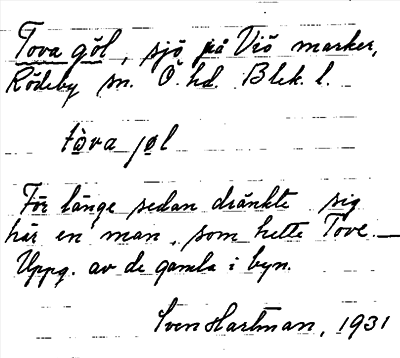 Tova göl, sjö på Viö marker,
Rödeby sn. Ö. hd. Blek. l.
tòva jøl
För länge sedan dränkte sig
här en man, som hette Tove. —
Uppg. av de gamla i byn.
Sven Hartman, 1931